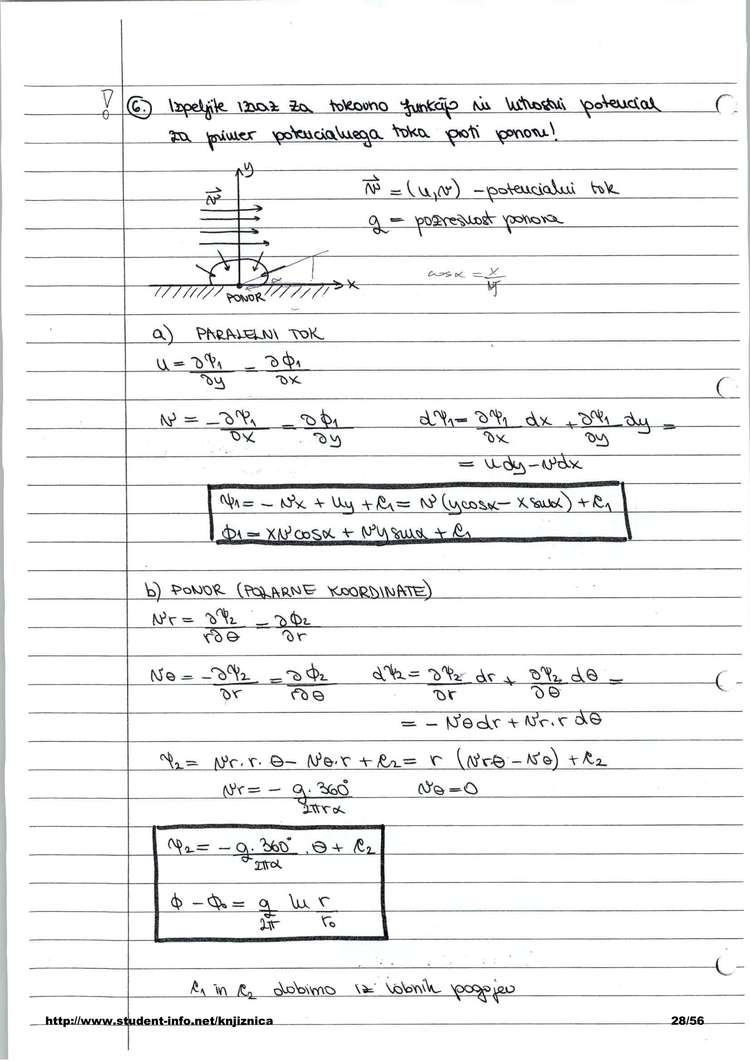 ! 6. Izpeljite izraz za tokovno funkcijo in hitrostni potencial
za primer potencialnega toka proti ponoru!
y
v⃗
v⃗ = (u,v) - potencialni tok
q = požrešnost ponora
α
x
PONOR
cosα = x/v
a) PARALELNI TOK
u = ∂Ψ1/∂y = ∂Φ1/∂x
v = -∂Ψ1/∂x = ∂Φ1/∂y dΨ1 = ∂Ψ1/∂x dx + ∂Ψ1/∂y dy =
= udy - vdx
Ψ1 = - vx + uy + C1 = v (ycosα - x sinα) + C1
Φ1 = xvcosα + vysinα + C1
b) PONOR (POLARNE KOORDINATE)
vr = ∂Ψ2/r∂θ = ∂Φ2/∂r
vθ = -∂Ψ2/∂r = ∂Φ2/r∂θ dΨ2 = ∂Ψ2/∂r dr + ∂Ψ2/∂θ dθ =
= - vθdr + vr.r dθ
Ψ2 = vr.r.θ - vθ.r + C2 = r (vrθ - vθ) + C2
vr = - q.360°/2πrα vθ = 0
Ψ2 = - q.360°/2πα .θ + C2
Φ - Φ0 = q/2π ln r/r0
C1 in C2 dobimo iz robnih pogojev
http://www.student-info.net/knjiznica 28/56